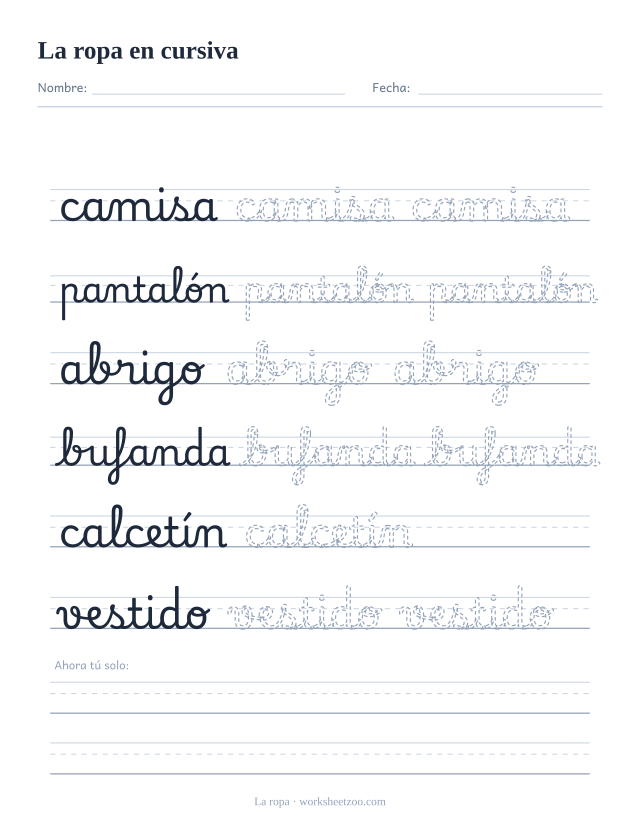 La ropa en cursiva
Nombre: Fecha:
camisa camisa camisa
pantalón pantalón pantalón
abrigo abrigo abrigo
bufanda bufanda bufanda
calcetín calcetín
vestido vestido vestido
Ahora tú solo:
La ropa · worksheetzoo.com